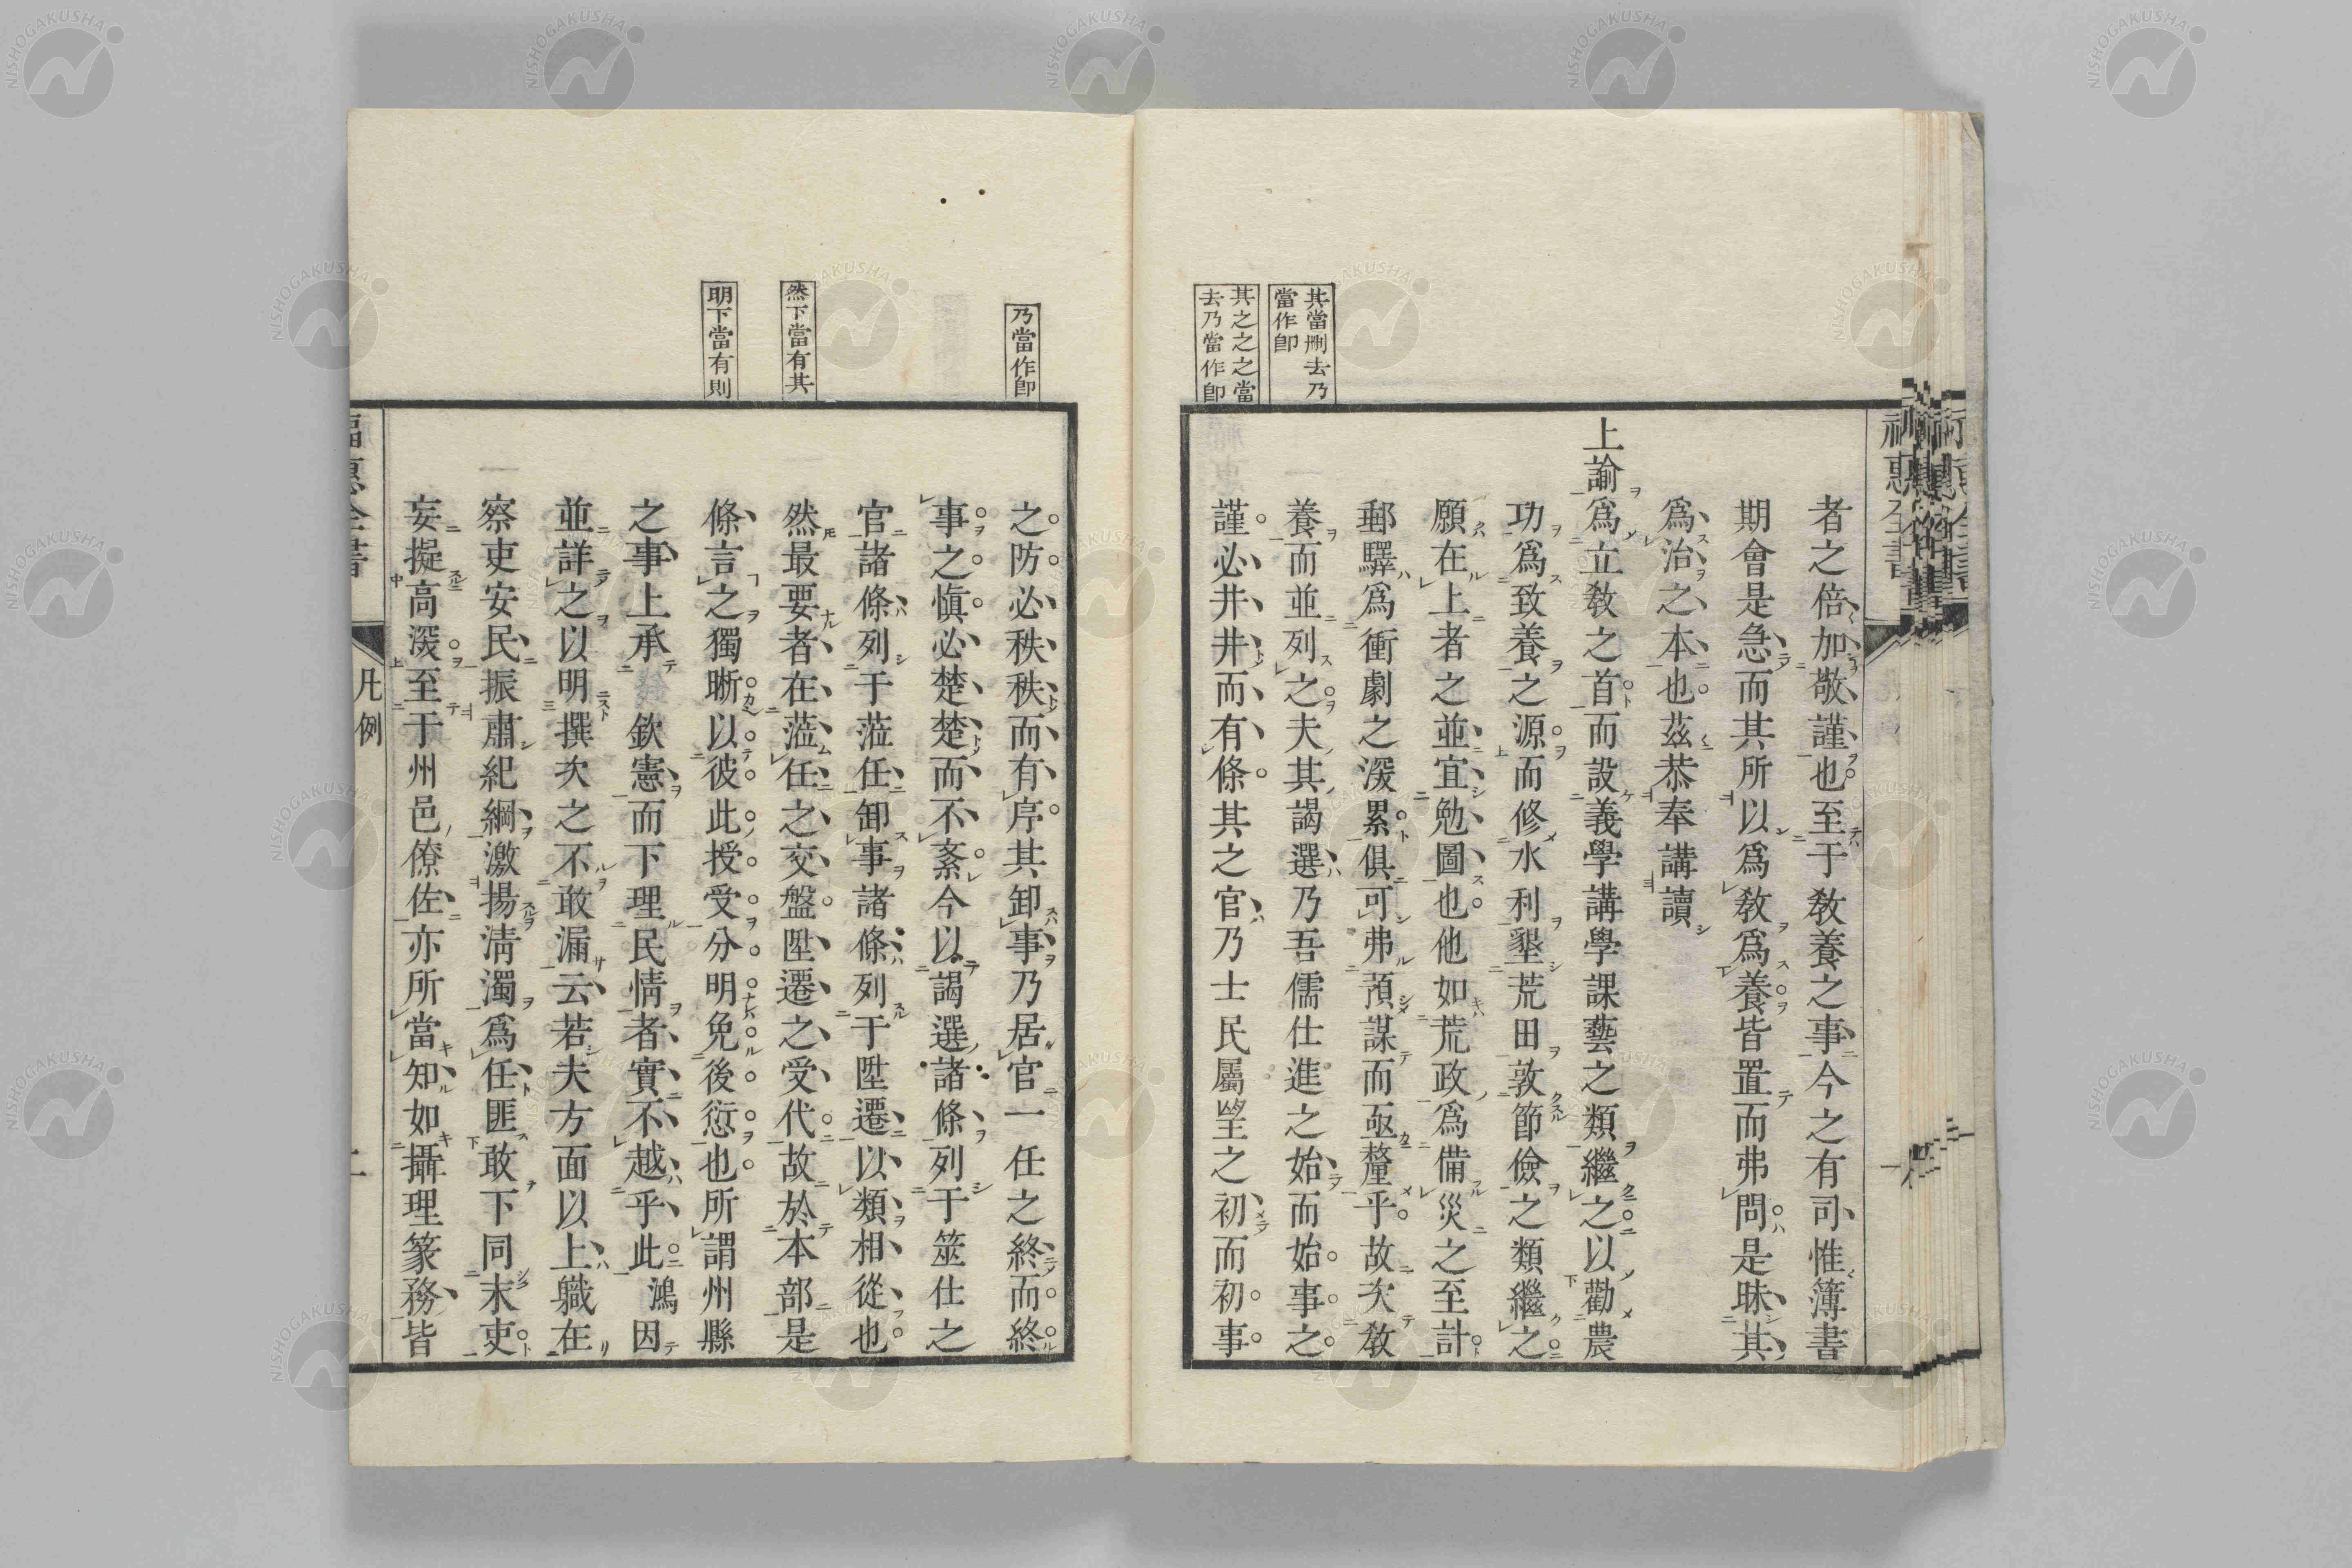 福惠全書
其當刪去乃
當作卽
其之之之當
去乃當作卽
者之倍加敬謹也至于敎養之事今之有司惟簿書
期會是急而其所以爲敎爲養皆置而弗問是昧其
爲治之本也茲恭奉講讀
上諭爲立敎之首而設義學講學課藝之類繼之以勸農
功爲致養之源而修水利墾荒田敦節儉之類繼之
願在上者之並宜勉圖也他如荒政爲備災之至計
郵驛爲衝劇之深累俱可弗預謀而亟釐乎故次敎
養而並列之夫其謁選乃吾儒仕進之始而始事之
謹必井井而有條其之官乃士民屬望之初而初事
乃當作卽
然下當有其
明下當有則
之防必秩秩而有序其卸事乃居官一任之終而終
事之愼必楚楚而不紊今以謁選諸條列于筮仕之
官諸條列于蒞任卸事諸條列于陞遷以類相從也
然最要者在蒞任之交盤陞遷之受代故於本部是
條言之獨晰以彼此授受分明免後愆也所謂州縣
之事上承 欽憲而下理民情者實不越乎此 鴻因
並詳之以明撰次之不敢漏云若夫方面以上職在
察吏安民振肅紀綱激揚淸濁爲任匪敢下同末吏
妄擬高深至于州邑僚佐亦所當知如攝理篆務皆
福惠全書
凡例